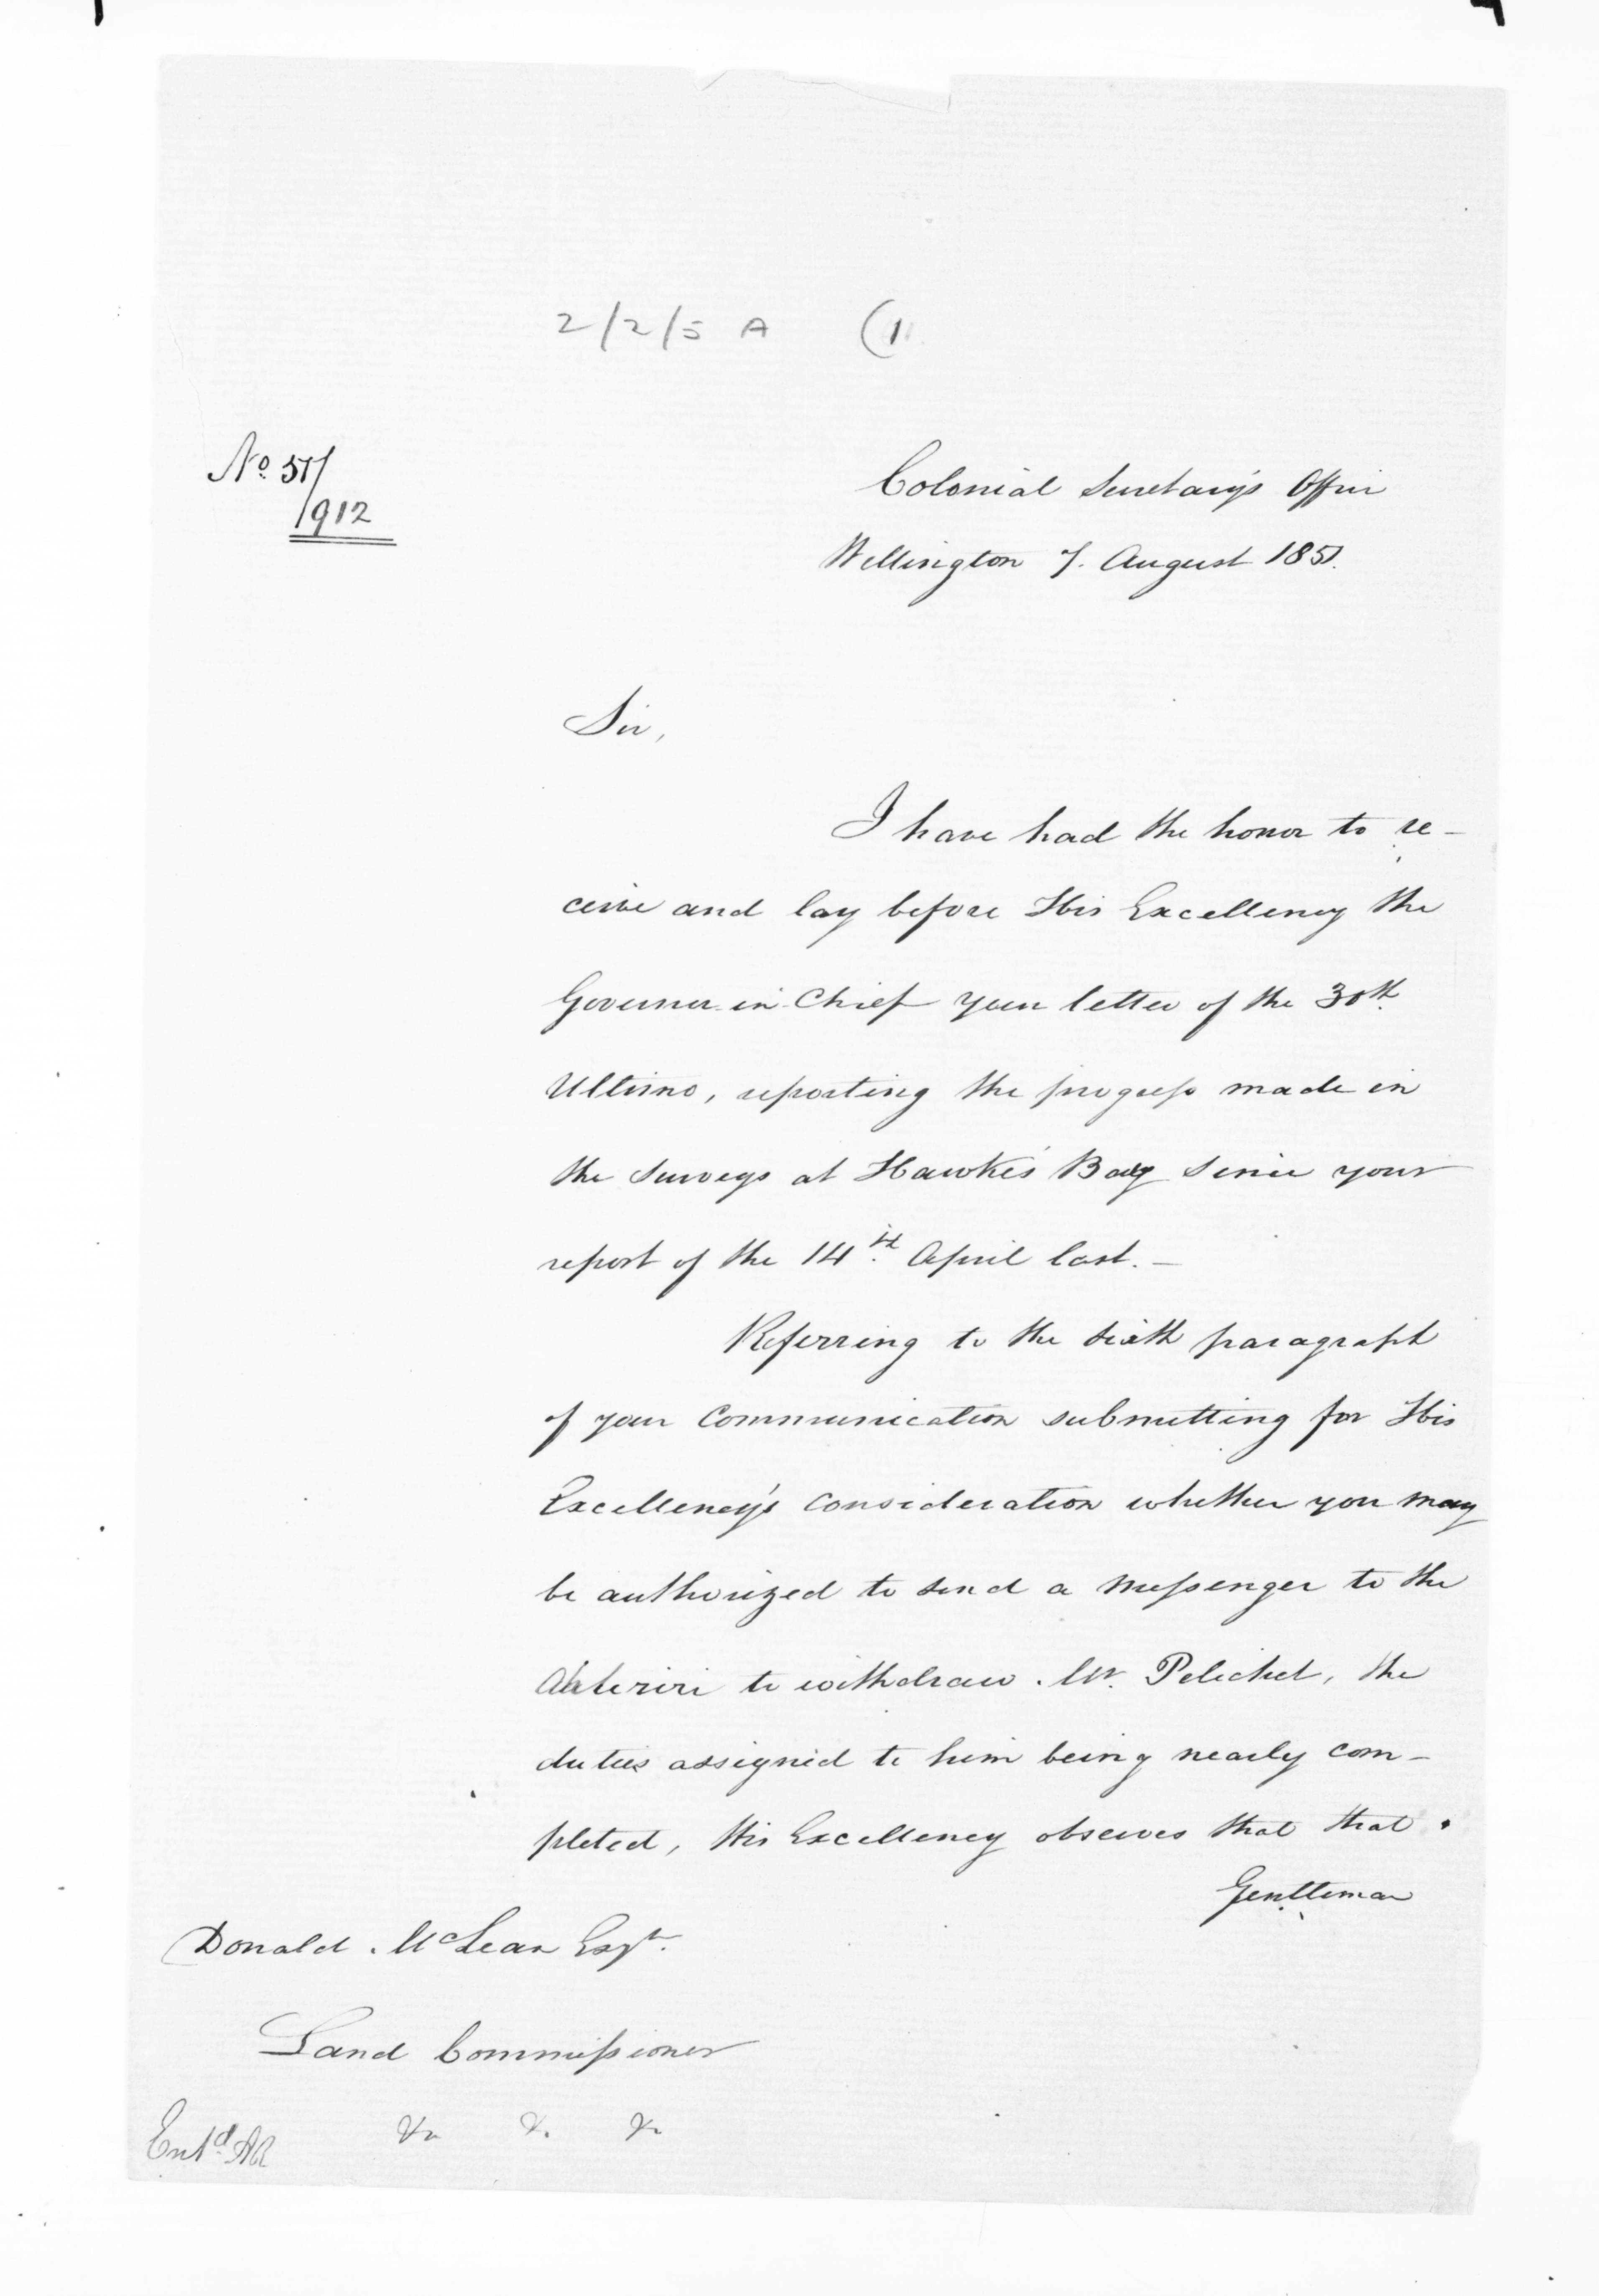 2/2/5 A (1
No. 51/
/912
Colonial Secretary's Office
Wellington 7. August 1851.
Sir,
I have had the honor to re-
ceive and lay before His Excellency the
Governor-in-Chief your letter of the 30th.
Ultimo, reporting the progress made in
the Surveys at Hawke's Bay since your
report of the 14th. April last. —
Referring to the sixth paragraph
of your Communication submitting for His
Excellency's consideration whether you may
be authorized to send a Messenger to the
Ahuriri to withdraw Mr. Pelichet, the
duties assigned to him being nearly com-
pleted, His Excellency observes that that
Gentleman
Donald McLean Esqr.
Land Commissioner
&c &c &c
Entd. AR